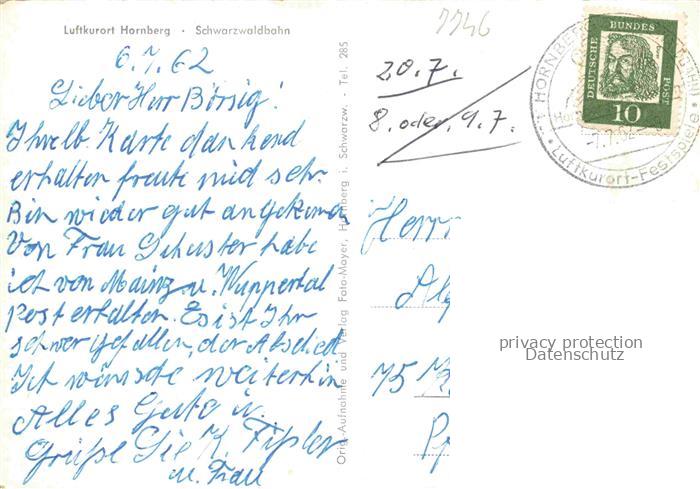 Luftkurort Hornberg · Schwarzwaldbahn
6.7.62
Lieber Herr Börsig!
Ihre lb. Karte dankend
erhalten freute mich sehr.
Bin wieder gut angekommen
Von Frau Schuster habe
ich von Mainz u. Wuppertal
Post erhalten. Es ist Ihr
schwer gefallen, der Abschied
Ich wünsche weiterhin
Alles Gute u.
Grüße Sie K. Fißler
u. Frau
Orig.-Aufnahme und Verlag Foto-Mayer, Hornberg i. Schwarzw. · Tel. 285
7746
20.7.
8. oder 9.7.
DEUTSCHE BUNDES POST
10
HORNBERG
-7.7.62
Luftkurort-Festspiele
Herr
75
privacy protection
Datenschutz